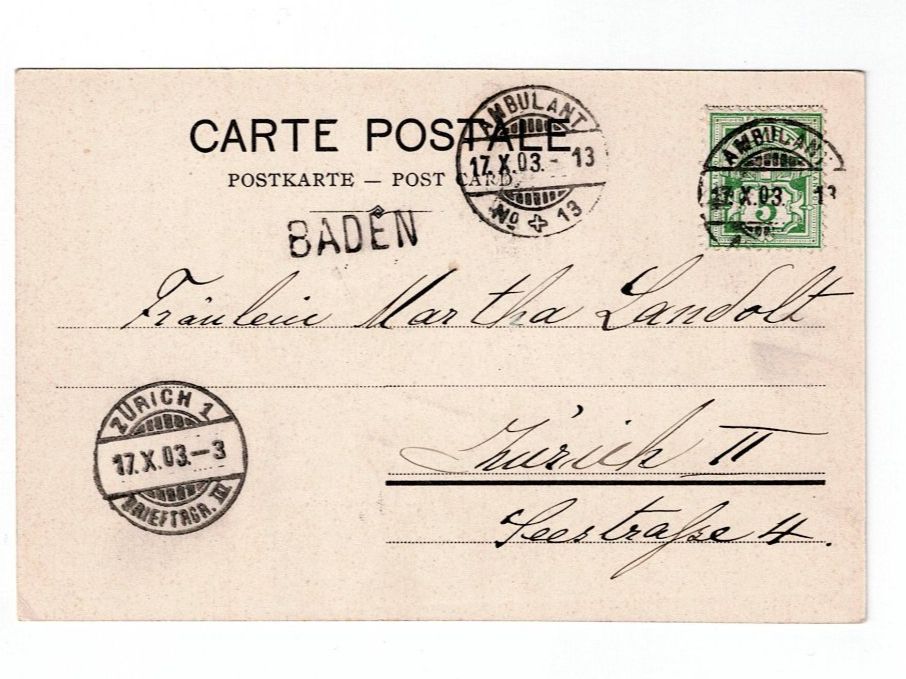 CARTE POSTALE
POSTKARTE — POST CARD.
AMBULANT
17.X.03.-13
No 13
AMBULANT
17.X.03. 13
5
BADEN
Fräulein Martha Landolt
Zürich II
Seestraße 4.
ZÜRICH 1
17.X.03.-3
BRIEFTRGR. III